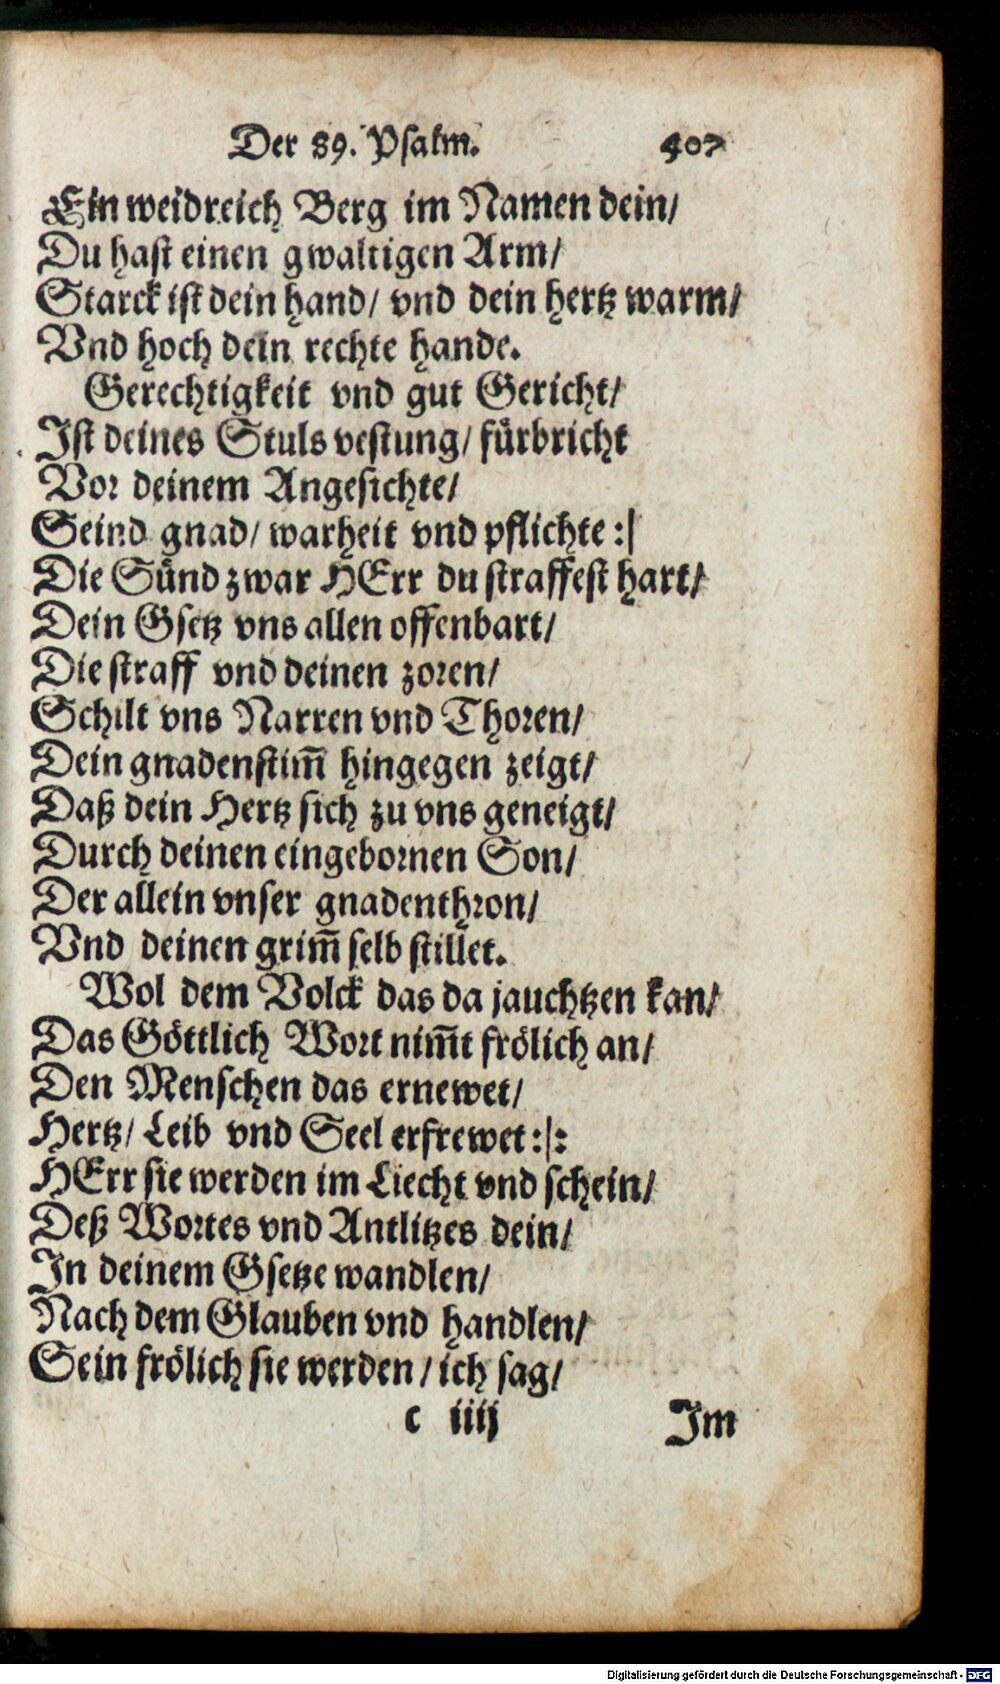 Der 89. Psalm. 407
Ein weidreich Berg im Namen dein/
Du hast einen gwaltigen Arm/
Starck ist dein hand/ vnd dein hertz warm/
Vnd hoch dein rechte hande.
Gerechtigkeit vnd gut Gericht/
Ist deines Stuls vestung/ fürbricht
Vor deinem Angesichte/
Seind gnad/ warheit vnd pflichte :|
Die Sünd zwar HErr du straffest hart/
Dein Gsetz vns allen offenbart/
Die straff vnd deinen zoren/
Schilt vns Narren vnd Thoren/
Dein gnadenstim̃ hingegen zeigt/
Daß dein Hertz sich zu vns geneigt/
Durch deinen eingebornen Son/
Der allein vnser gnadenthron/
Vnd deinen grim̃ selb stillet.
Wol dem Volck das da jauchtzen kan/
Das Göttlich Wort nim̃t frölich an/
Den Menschen das ernewet/
Hertz/ Leib vnd Seel erfrewet :|:
HErr sie werden im Liecht vnd schein/
Deß Wortes vnd Antlitzes dein/
In deinem Gsetze wandlen/
Nach dem Glauben vnd handlen/
Sein frölich sie werden / ich sag/
c iiij Im
Digitalisierung gefördert durch die Deutsche Forschungsgemeinschaft - DFG